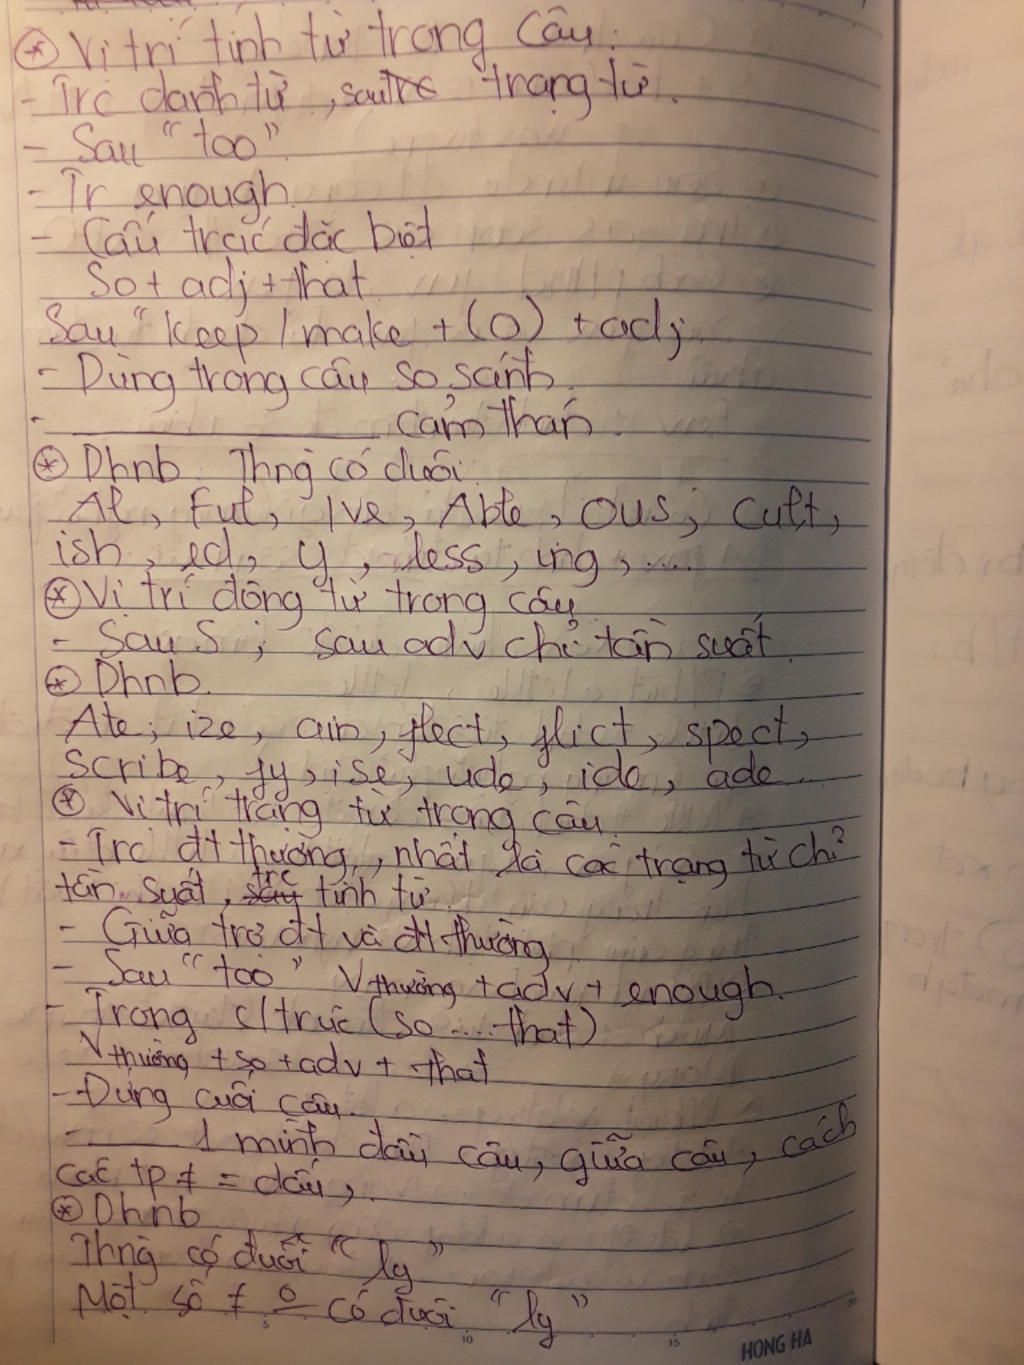 * Vị trí tính từ trong câu:
- Trc danh từ, sau trạng từ.
- Sau "too"
- Tr enough.
- Cấu trúc đặc biệt
So + adj + that
Sau "keep / make + (O) + adj
- Dùng trong câu so sánh.
- ________ cảm thán.
* Dhnb. Thng có đuôi:
Al, Ful, Ive, Able, OUS, Cult,
ish, ed, y, less, ing, ....
* Vị trí động từ trong câu
- Sau S; sau adv chỉ tần suất.
* Dhnb.
Ate, ize, ain, flect, flict, spect,
Scribe, fy, ise, ude, ide, ade ...
* Vị trí trạng từ trong câu.
- Trc đt thường, nhất là các trạng từ chỉ
tần suất, trc tính từ.
- Giữa trợ đt và đt thường
- Sau "too" V thường + adv + enough.
- Trong c/trúc (so .... that)
V thường + so + adv + that
- Đứng cuối câu.
- ________ 1 mình đầu câu, giữa câu, cách
các tp ≠ = dấu,
* Dhnb
Thng có đuôi "ly"
Một số ≠ o có đuôi "ly"
HONG HA